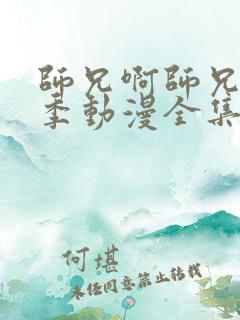 師兄啊師兄
季動漫全集
何堪
未經同意禁止轉載